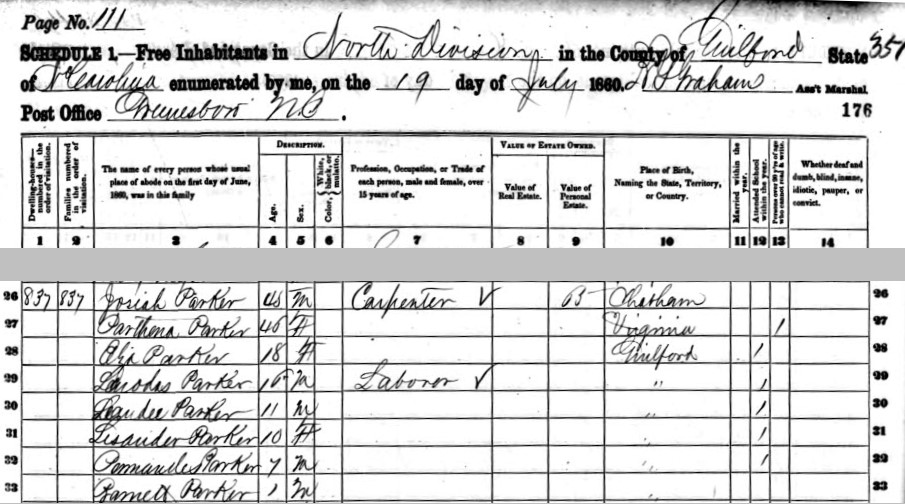 Page No. 111
SCHEDULE 1.—Free Inhabitants in North Division in the County of Guilford State 351
of N Carolina enumerated by me, on the 19 day of July 1860. Graham Ass't Marshal.
Post Office Greensboro NC . 176
Dwelling-houses—numbered in the order of visitation.
Families numbered in the order of visitation.
The name of every person whose usual place of abode on the first day of June, 1860, was in this family
DESCRIPTION.
Age.
Sex.
Color, { White, black, or mulatto.
Profession, Occupation, or Trade of each person, male and female, over 15 years of age.
VALUE OF ESTATE OWNED.
Value of Real Estate.
Value of Personal Estate.
Place of Birth, Naming the State, Territory, or Country.
Married within the year.
Attended School within the year.
Persons over 20 y'rs of age who cannot read & write.
Whether deaf and dumb, blind, insane, idiotic, pauper, or convict.
1 2 3 4 5 6 7 8 9 10 11 12 13 14
26 837 837 Josiah Parker M Carpenter 65 Chatham 26
27 Parthena Parker F Virginia 1 27
28 Parker 18 F Guilford 1 28
29 Parker M Laborer " 1 29
30 Parker 11 M " 1 30
31 Lisander Parker 10 F " 1 31
32 Parker 7 M " 1 32
33 Barnett Parker 1 M 33